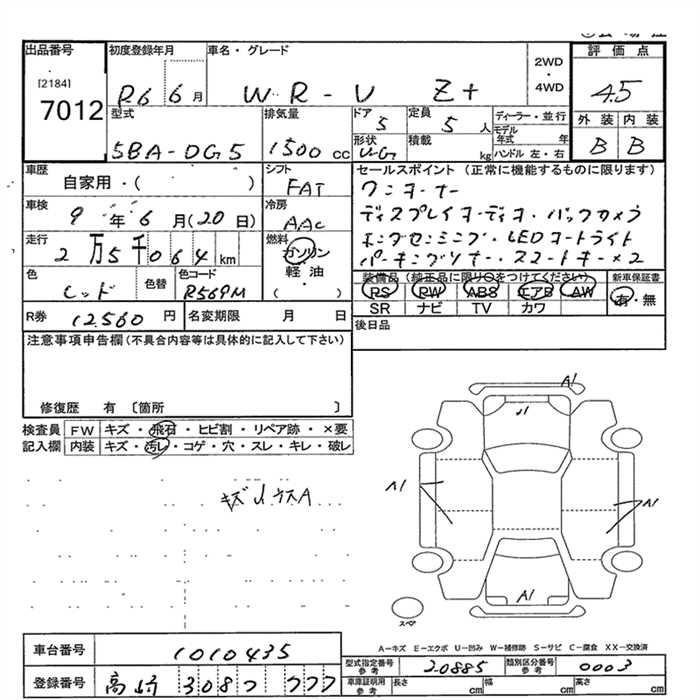 出品番号 初度登録年月 車名・グレード 評価点
[2184] 2WD・4WD
7012 R6 6月 WR-V Z+ 4.5
型式 排気量 ドア 5 定員 5人 ディーラー・並行 外装 内装
5BA-DG5 1500cc 形状 積載 kg モデル年式 年 ハンドル 左・右 B B
車歴 シフト セールスポイント (正常に機能するものに限ります)
自家用・( ) FAT ワンオーナー
車検 冷房 ディスプレイオーディオ・バックカメラ
9年6月(20日) AAC ホンダセンシング・LEDヘッドライト
走行 燃料 パーキングソナー・スマートキー×2
2万5千064km ガソリン
色 色替 色コード 軽油・ 装備品(純正品に限り○をつけてください) 新車保証書
レッド R569M ( ) PS PW ABS エアB AW 有・無
SR ナビ TV カワ
R券 12,560円 名変期限 月 日 後日品
注意事項申告欄(不具合内容等は具体的に記入して下さい)
修復歴 有 〔箇所 〕
検査員 FW キズ・飛石・ヒビ割・リペア跡・×要
記入欄 内装 キズ・汚レ・コゲ・穴・スレ・キレ・破レ
A1
A1 A1
A1
スペア
A-キズ E-エクボ U-凹み W-補修跡 S-サビ C-腐食 XX-交換済
車台番号 1010435 型式指定番号 参考 20885 類別区分番号 参考 0003
登録番号 高崎 308 777 車庫証明用 参考 長さ cm 幅 cm 高さ cm